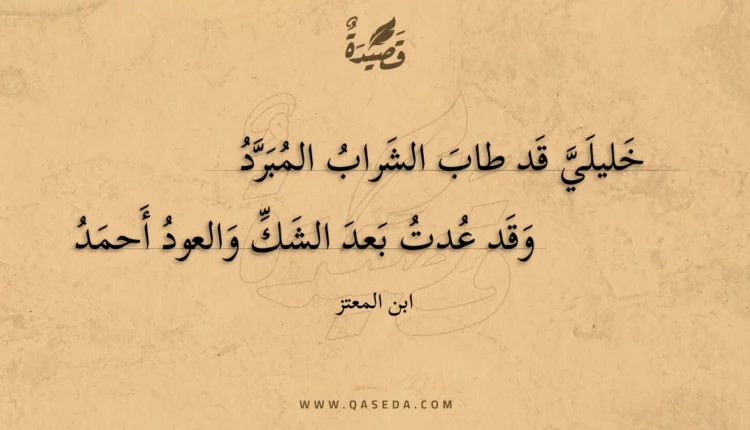 قَصِيدَةٌ
خَليلَيَّ قَد طابَ الشَرابُ المُبَرَّدُ
وَقَد عُدتُ بَعدَ الشَكِّ وَالعودُ أَحمَدُ
ابن المعتز
WWW.QASEDA.COM